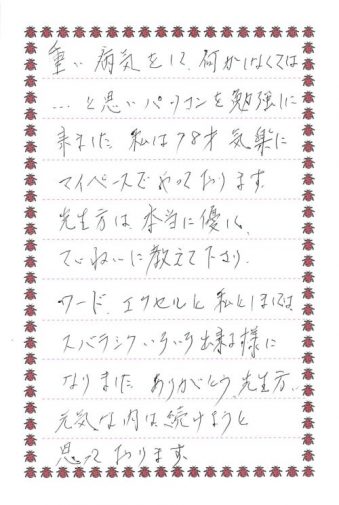 重い病気をして、何かしなくては
…と思いパソコンを勉強に
来ました 私は78才 気楽に
マイペースでやっております。
先生方は、本当に優しく、
ていねいに教えて下さり、
ワード、エクセルと私としましては
スバラシクいろいろ出来る様に
なりました ありがとう、先生方、
元気な内は続けようと
思っております。